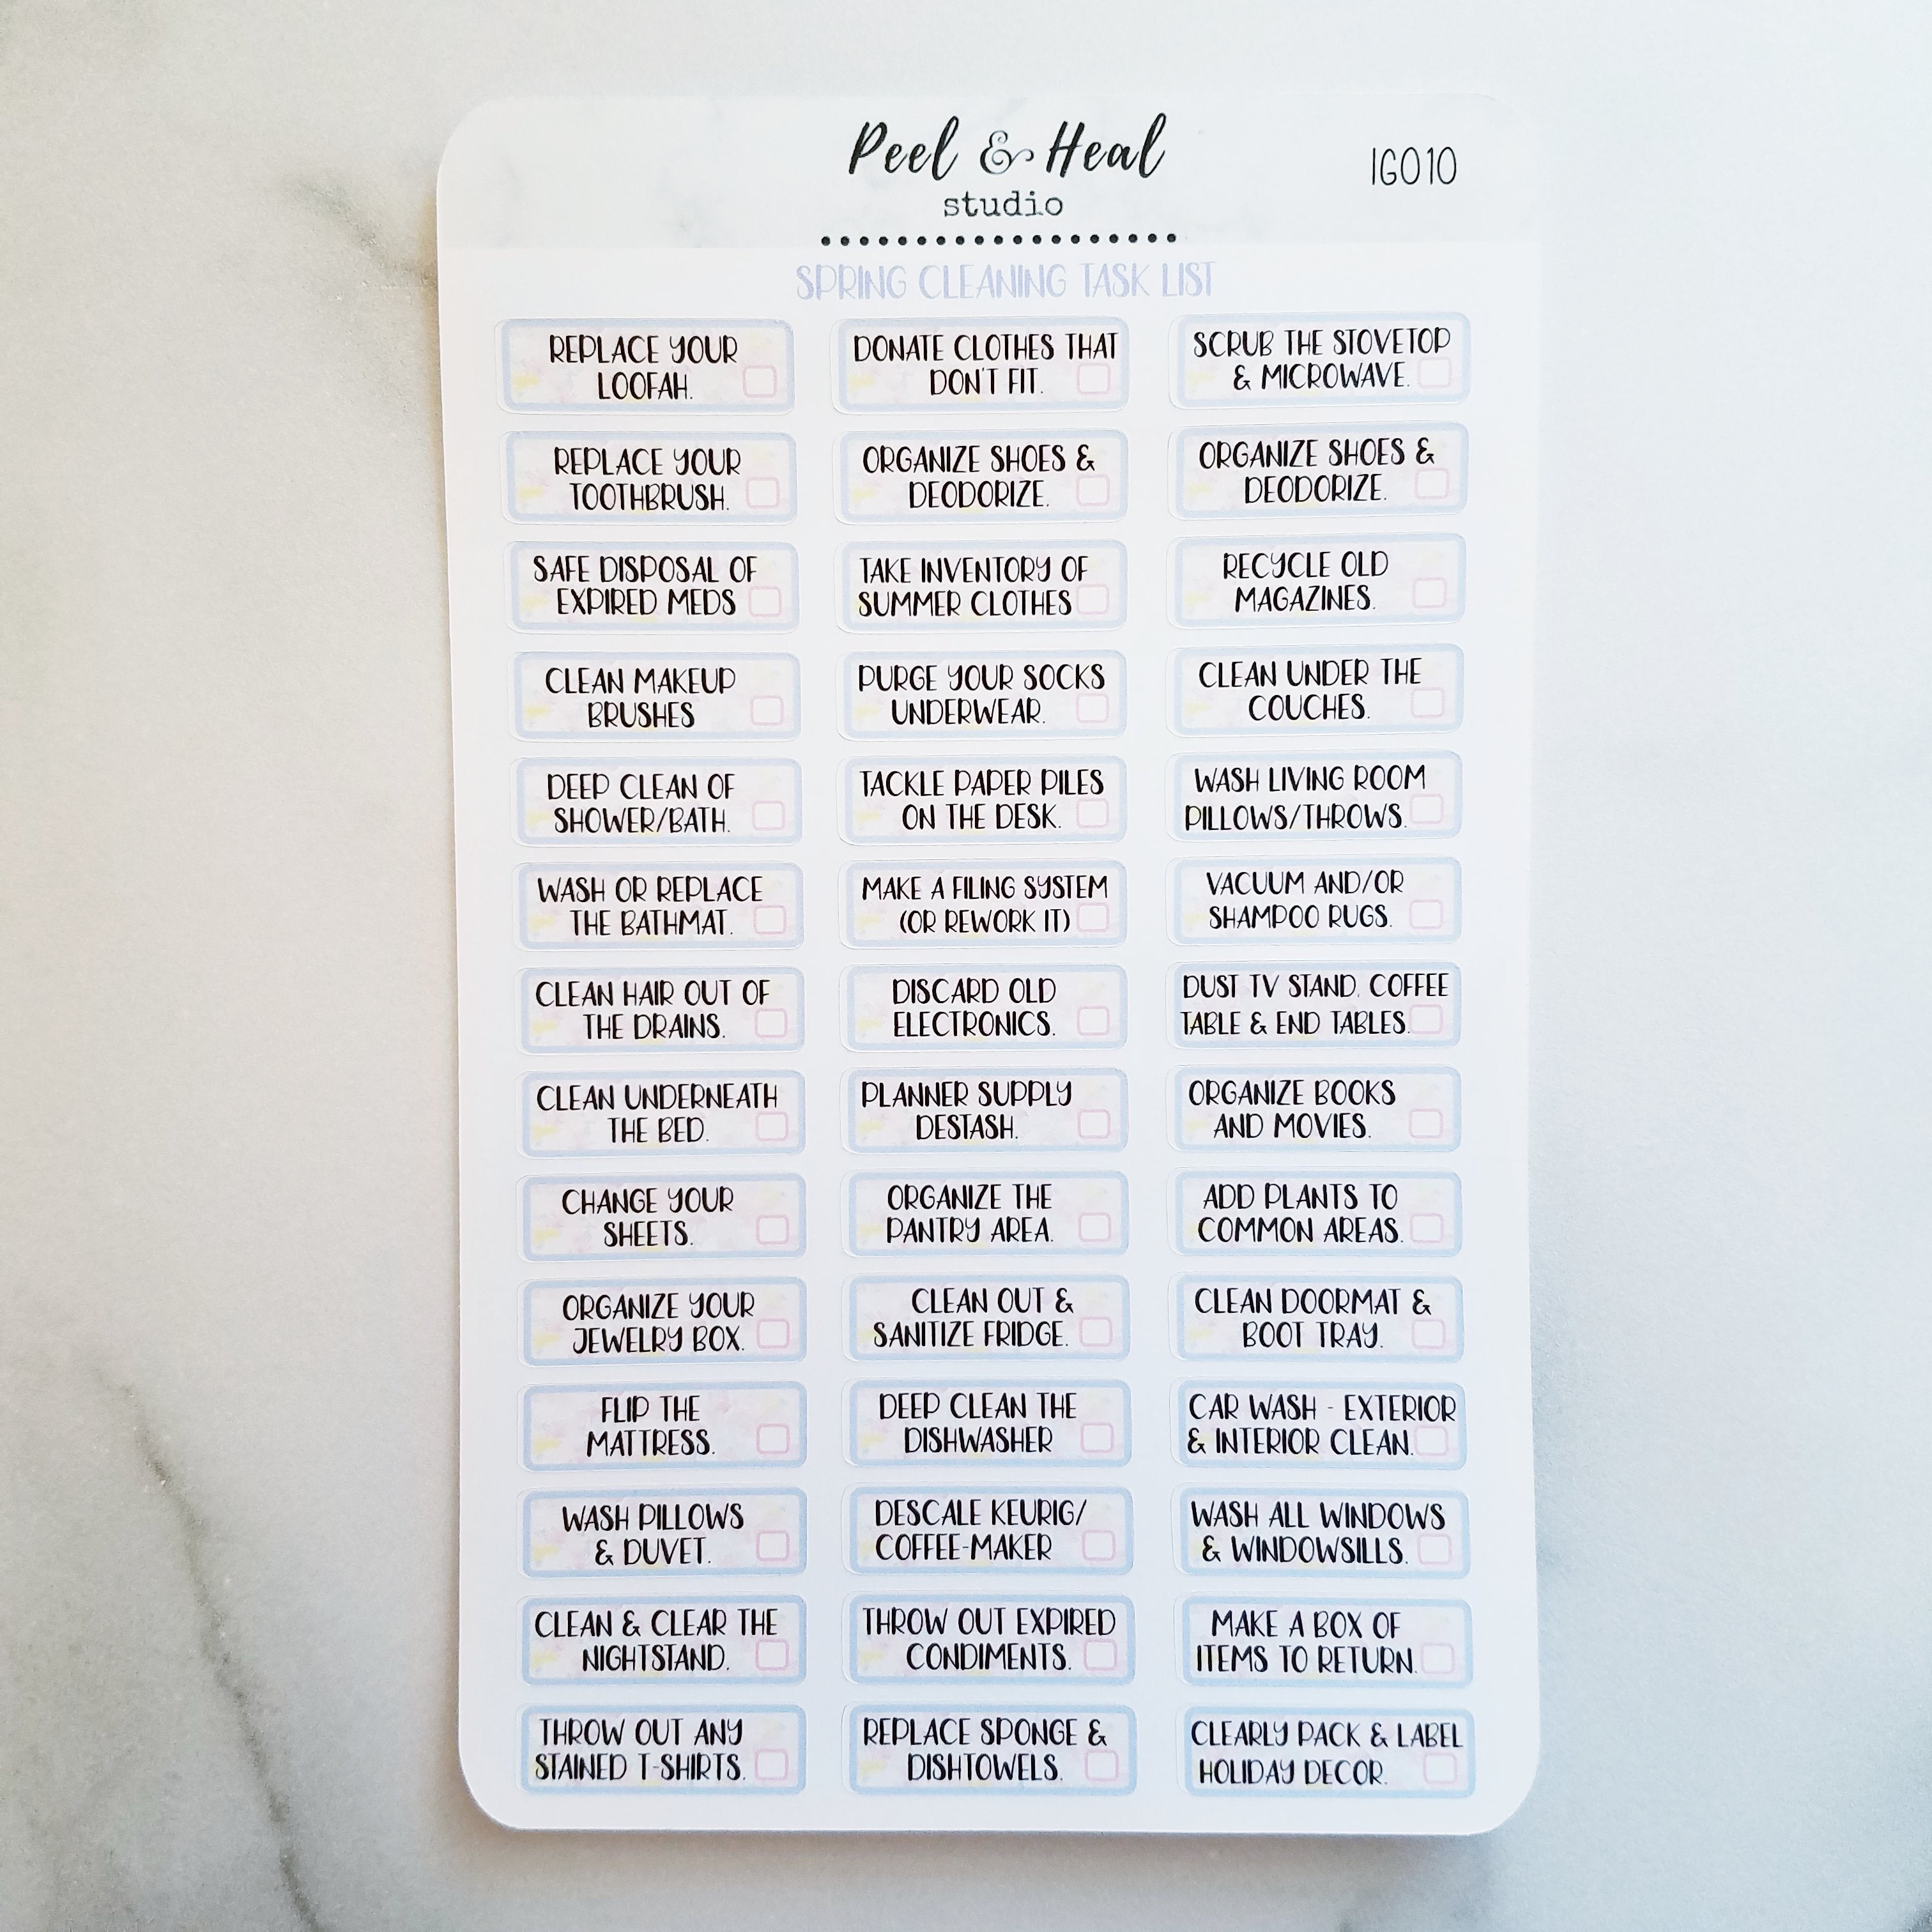 Peel & Heal
studio
IG010
SPRING CLEANING TASK LIST
REPLACE YOUR
LOOFAH.
DONATE CLOTHES THAT
DON'T FIT.
SCRUB THE STOVETOP
& MICROWAVE.
REPLACE YOUR
TOOTHBRUSH.
ORGANIZE SHOES &
DEODORIZE.
ORGANIZE SHOES &
DEODORIZE.
SAFE DISPOSAL OF
EXPIRED MEDS
TAKE INVENTORY OF
SUMMER CLOTHES
RECYCLE OLD
MAGAZINES.
CLEAN MAKEUP
BRUSHES
PURGE YOUR SOCKS
UNDERWEAR.
CLEAN UNDER THE
COUCHES.
DEEP CLEAN OF
SHOWER/BATH.
TACKLE PAPER PILES
ON THE DESK.
WASH LIVING ROOM
PILLOWS/THROWS.
WASH OR REPLACE
THE BATHMAT.
MAKE A FILING SYSTEM
(OR REWORK IT)
VACUUM AND/OR
SHAMPOO RUGS.
CLEAN HAIR OUT OF
THE DRAINS.
DISCARD OLD
ELECTRONICS.
DUST TV STAND, COFFEE
TABLE & END TABLES.
CLEAN UNDERNEATH
THE BED.
PLANNER SUPPLY
DESTASH.
ORGANIZE BOOKS
AND MOVIES.
CHANGE YOUR
SHEETS.
ORGANIZE THE
PANTRY AREA.
ADD PLANTS TO
COMMON AREAS.
ORGANIZE YOUR
JEWELRY BOX.
CLEAN OUT &
SANITIZE FRIDGE.
CLEAN DOORMAT &
BOOT TRAY.
FLIP THE
MATTRESS.
DEEP CLEAN THE
DISHWASHER
CAR WASH - EXTERIOR
& INTERIOR CLEAN.
WASH PILLOWS
& DUVET.
DESCALE KEURIG/
COFFEE-MAKER
WASH ALL WINDOWS
& WINDOWSILLS.
CLEAN & CLEAR THE
NIGHTSTAND.
THROW OUT EXPIRED
CONDIMENTS.
MAKE A BOX OF
ITEMS TO RETURN.
THROW OUT ANY
STAINED T-SHIRTS.
REPLACE SPONGE &
DISHTOWELS.
CLEARLY PACK & LABEL
HOLIDAY DECOR.